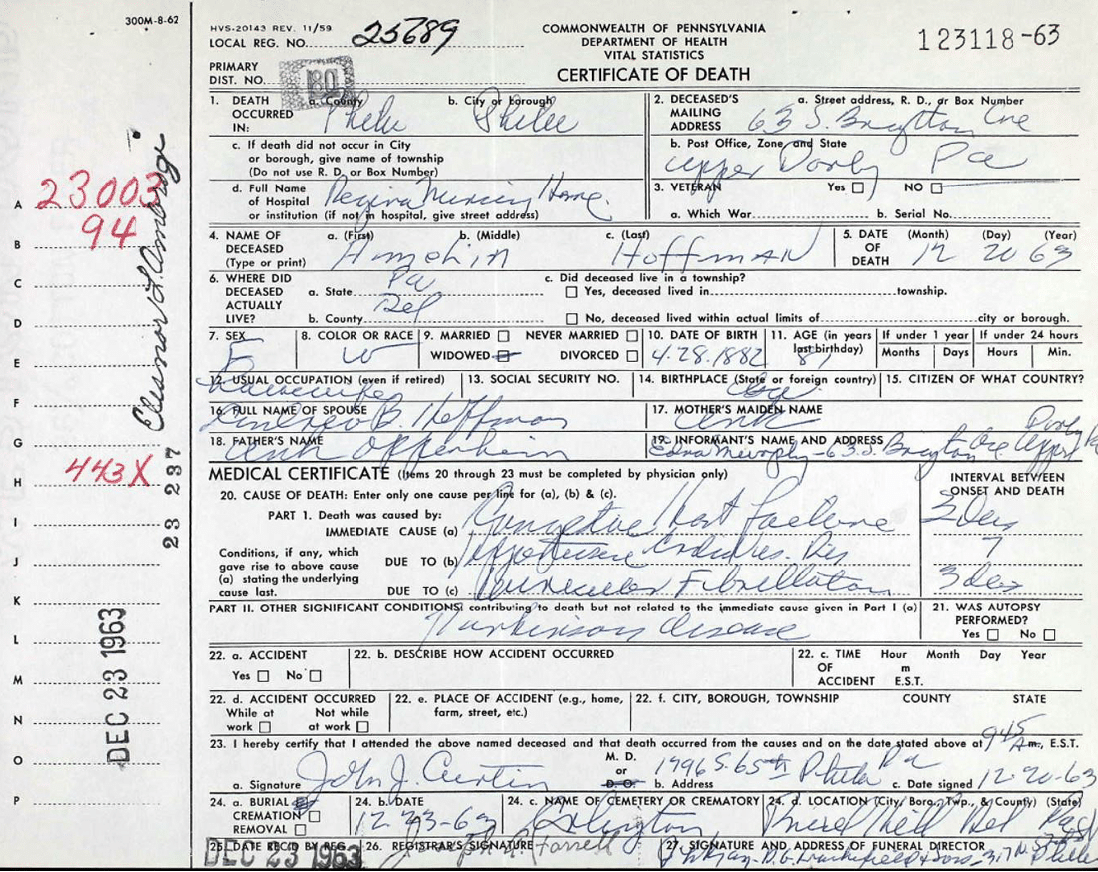 300M-8-62
HVS-20143 REV. 11/59
LOCAL REG. NO. 25689
COMMONWEALTH OF PENNSYLVANIA
DEPARTMENT OF HEALTH
VITAL STATISTICS
CERTIFICATE OF DEATH
123118-63
PRIMARY
DIST. NO. 180
1. DEATH OCCURRED IN: a. County Phila b. City or borough Phila
c. If death did not occur in City
or borough, give name of township
(Do not use R. D. or Box Number)
d. Full Name of Hospital Regina Nursing Home.
or institution (if not in hospital, give street address)
2. DECEASED'S MAILING ADDRESS a. Street address, R. D., or Box Number
63 S. Brayton Ave
b. Post Office, Zone, and State
Upper Darby Pa
3. VETERAN Yes NO
a. Which War b. Serial No.
4. NAME OF DECEASED (Type or print) a. (First) b. (Middle) c. (Last) HOFFMAN
5. DATE OF DEATH (Month) (Day) (Year)
12 20 63
6. WHERE DID DECEASED ACTUALLY LIVE?
a. State Pa
b. County Del
c. Did deceased live in a township?
Yes, deceased lived in township.
No, deceased lived within actual limits of city or borough.
7. SEX F
8. COLOR OR RACE W
9. MARRIED NEVER MARRIED
WIDOWED DIVORCED
10. DATE OF BIRTH
4.28.1882
11. AGE (in years last birthday) 81
If under 1 year Months Days
If under 24 hours Hours Min.
12. USUAL OCCUPATION (even if retired)
Housewife
13. SOCIAL SECURITY NO.
14. BIRTHPLACE (State or foreign country)
15. CITIZEN OF WHAT COUNTRY?
16. FULL NAME OF SPOUSE
Andrew B. Hoffman
17. MOTHER'S MAIDEN NAME
Unk
18. FATHER'S NAME
Unk Oppenheim
19. INFORMANT'S NAME AND ADDRESS
Edna Murphy - 63 S. Brayton Ave Upper Darby Pa
MEDICAL CERTIFICATE (Items 20 through 23 must be completed by physician only)
INTERVAL BETWEEN
ONSET AND DEATH
20. CAUSE OF DEATH: Enter only one cause per line for (a), (b) & (c).
PART 1. Death was caused by:
IMMEDIATE CAUSE (a) Congestive Heart Failure 3 days
Conditions, if any, which gave rise to above cause (a) stating the underlying cause last.
DUE TO (b) Hypertensive
DUE TO (c) Fibrillation 3 days
PART II. OTHER SIGNIFICANT CONDITIONS: contributing to death but not related to the immediate cause given in Part I (a)
Parkinsons disease
21. WAS AUTOPSY PERFORMED?
Yes No
22. a. ACCIDENT
Yes No
22. b. DESCRIBE HOW ACCIDENT OCCURRED
22. c. TIME OF ACCIDENT Hour Month Day Year
m
E.S.T.
22. d. ACCIDENT OCCURRED
While at work Not while at work
22. e. PLACE OF ACCIDENT (e.g., home, farm, street, etc.)
22. f. CITY, BOROUGH, TOWNSHIP COUNTY STATE
23. I hereby certify that I attended the above named deceased and that death occurred from the causes and on the date stated above at 945 A m., E.S.T.
a. Signature John J. Curtin M. D. or D.O. b. Address 1996 S. 65th Phila Pa c. Date signed 12-20-63
24. a. BURIAL
CREMATION
REMOVAL
24. b. DATE
12-23-63
24. c. NAME OF CEMETERY OR CREMATORY
Arlington
24. d. LOCATION (City, Boro., Twp., & County) (State)
Drexel Hill Del Pa
25. DATE REC'D BY REG.
DEC 23 1963
26. REGISTRAR'S SIGNATURE
Joseph A. Farrell
27. SIGNATURE AND ADDRESS OF FUNERAL DIRECTOR
A 23003
B 94
C
D
E
F
G
H 443X
I
J
K
L
M
N
O
P
23 237
DEC 23 1963